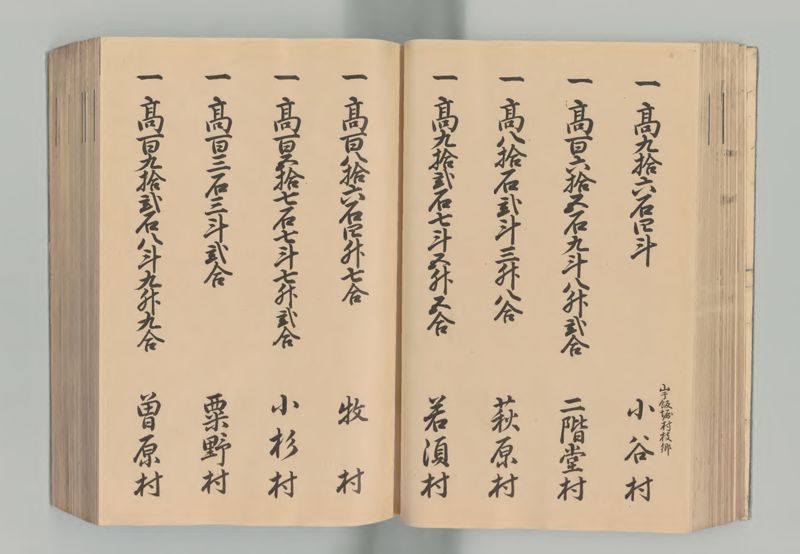 一 高九拾六石四斗
山手飯堀村枝郷
小谷村
一 高百六拾五石九斗八升弐合
二階堂村
一 高八拾石弐斗三升八合
萩原村
一 高九拾弐石七斗五升五合
若須村
一 高百八拾六石四升七合
牧村
一 高百五拾七石七斗七升弐合
小杉村
一 高百三石三斗弐合
粟野村
一 高百九拾弐石八斗九升九合
曽原村